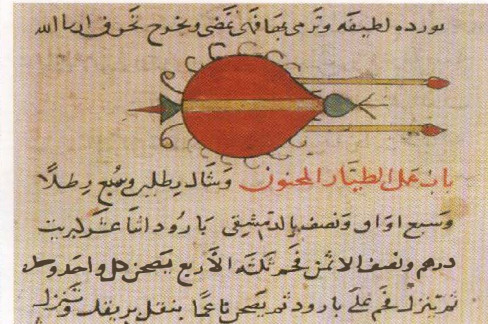 نورده لطيفه وترمى بها فهى تمضى وتخرج تحرق اربا الله
باب عمل الطيار المجنون ومثال رطلين وسبع رطلا
وسبع اواو ونصف بالدمشقى بارود اثنا عشر كبريت
درهم ونصف الا ثمن فحم ثلثه الاربع يصحن كل واحد وحده
ثم ينزل فحم على بارود ثم يصحن ناعما